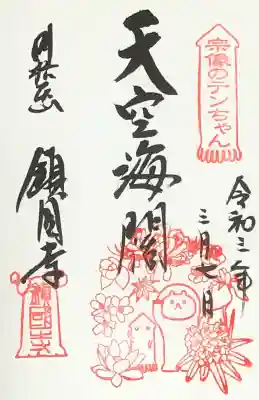 宗像のテンちゃん
令和三年
三月七日
天空海闊
屏風山
鎮国寺
鎮國寺